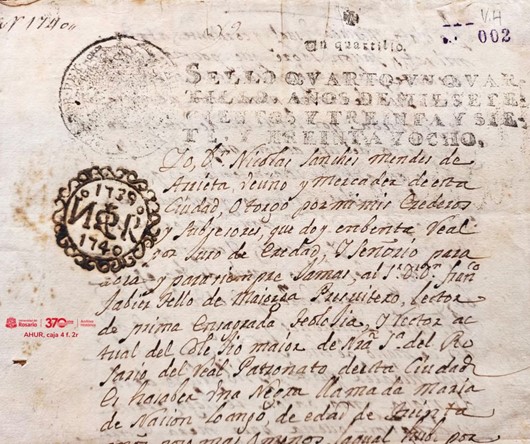 V.4
1740
002
Un quartillo
SELLO QUARTO, UN QUAR-
TILLO, AÑOS DE MIL SETE-
CIENTOS Y TREINTA Y SIE-
TE, Y TREINTA Y OCHO.
1739
1740
Yo, Dn. Nicolas Sanches mendes de
Arrieta, Vezino y Mercader de esta
Ciudad, Otorgo por mi y mis Erederos
y Subsesores, que doy en benta Real
por Juro de Eredad, y Señorio para
aora y para siempre Jamas al
Jabier Tello de Maiorga Presuitero, lector
de prima Ensagrada Teolojia, y Rector ac-
tual del Colejio maior de Nra Sa. del Ro-
sario del real Patronato de esta Ciudad
Es asaber Una Negra llamada Maria
de Nacion Loango, de edad de
Universidad del
Rosario
370 años
Archivo
Histórico
AHUR, caja 4 f. 2r